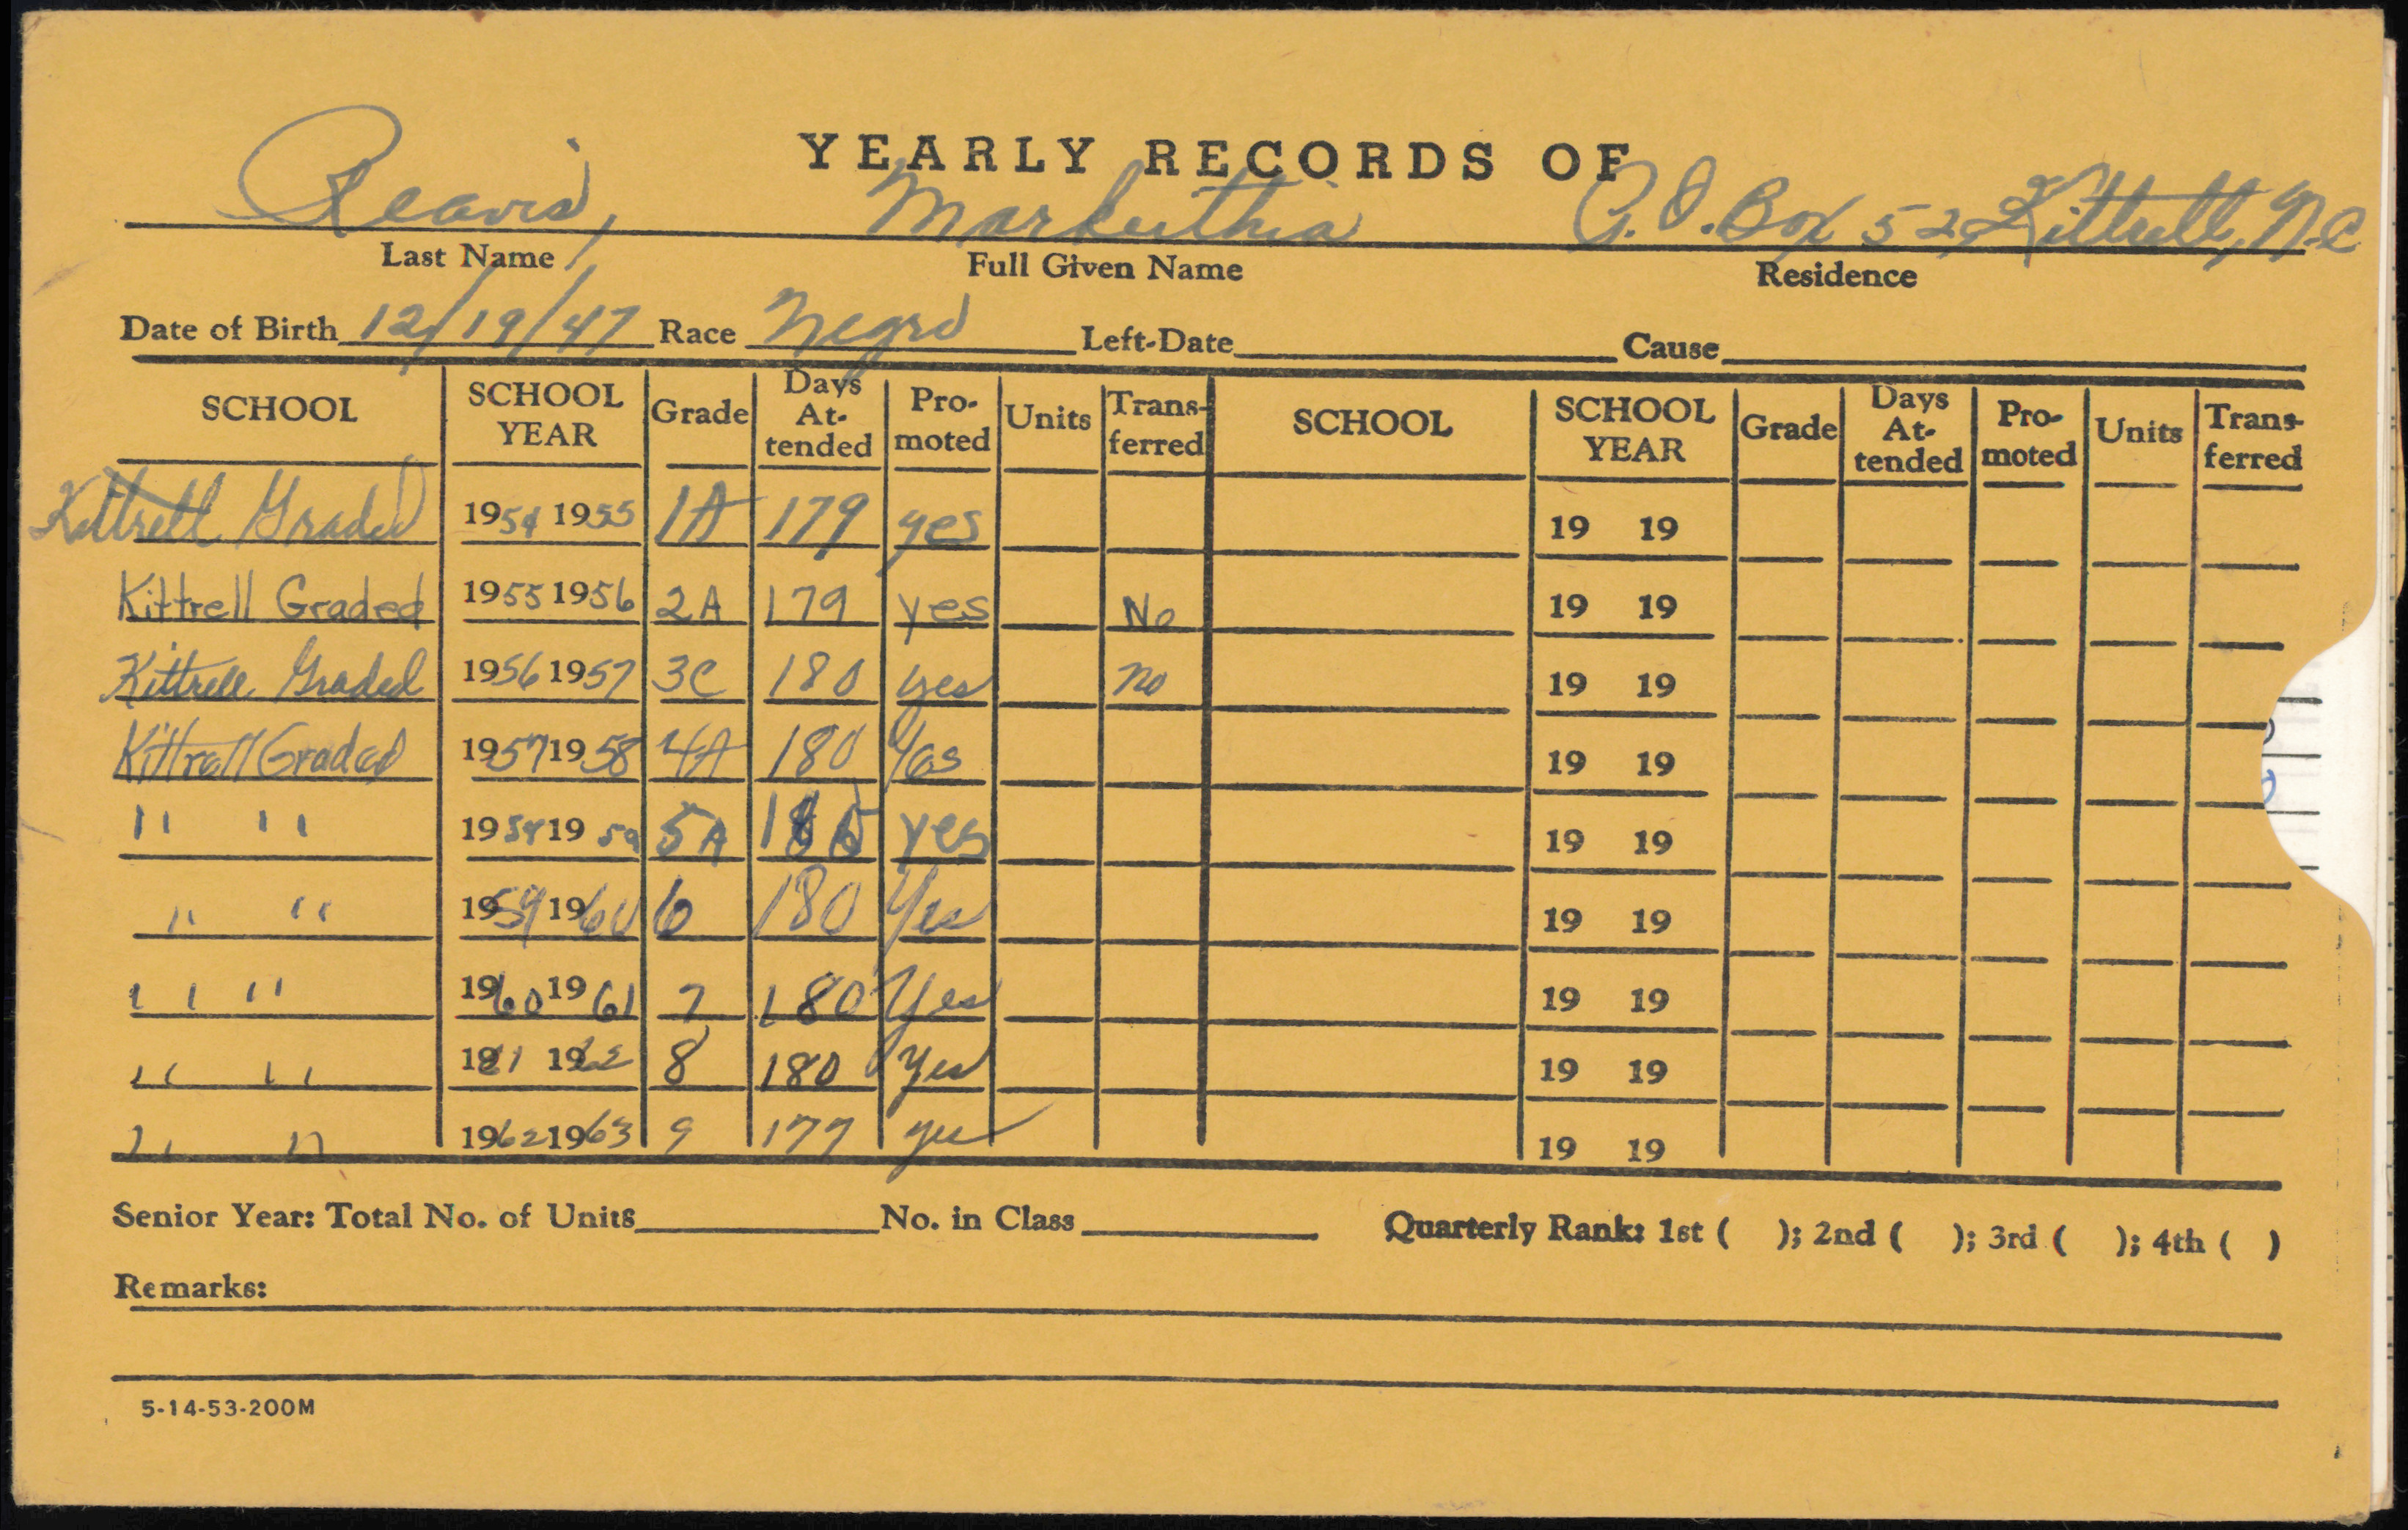 YEARLY RECORDS OF
Reavis, Markeithia P.O. Box 52, Kittrell, N.C
Last Name Full Given Name Residence
Date of Birth 12/19/47 Race Negro Left-Date Cause
SCHOOL SCHOOL YEAR Grade Days At-tended Pro-moted Units Trans-ferred SCHOOL SCHOOL YEAR Grade Days At-tended Pro-moted Units Trans-ferred
Kittrell Graded 1954 1955 1A 179 yes 19 19
Kittrell Graded 1955 1956 2A 179 yes No 19 19
Kittrell Graded 1956 1957 3C 180 yes no 19 19
Kittrell Graded 1957 1958 4A 180 Yes 19 19
" " 1958 19 59 5A yes 19 19
" " 1959 1960 6 180 Yes 19 19
" " 1960 19 61 7 180 Yes 19 19
" " 1961 1962 8 180 Yes 19 19
" " 1962 1963 9 177 yes 19 19
Senior Year: Total No. of Units No. in Class Quarterly Rank: 1st ( ); 2nd ( ); 3rd ( ); 4th ( )
Remarks:
5-14-53-200M